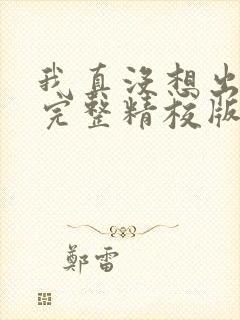 我真没想出
完整精校版
鄭雷